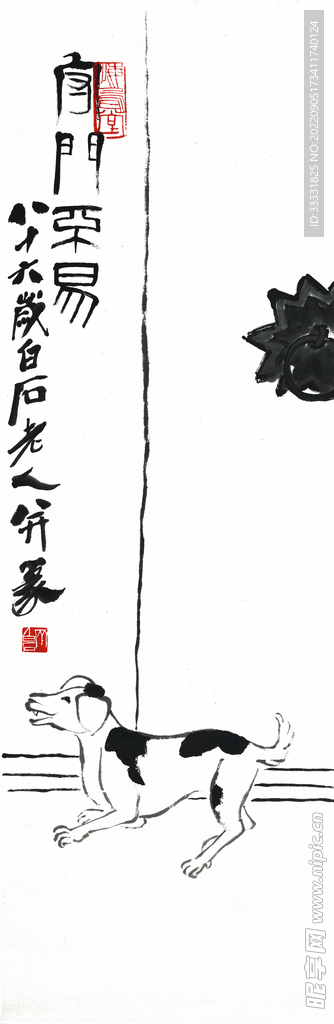 守門不易
八十六歲白石老人并篆
ID:33331825 NO:20220905173411740124
昵享网 www.nipic.cn